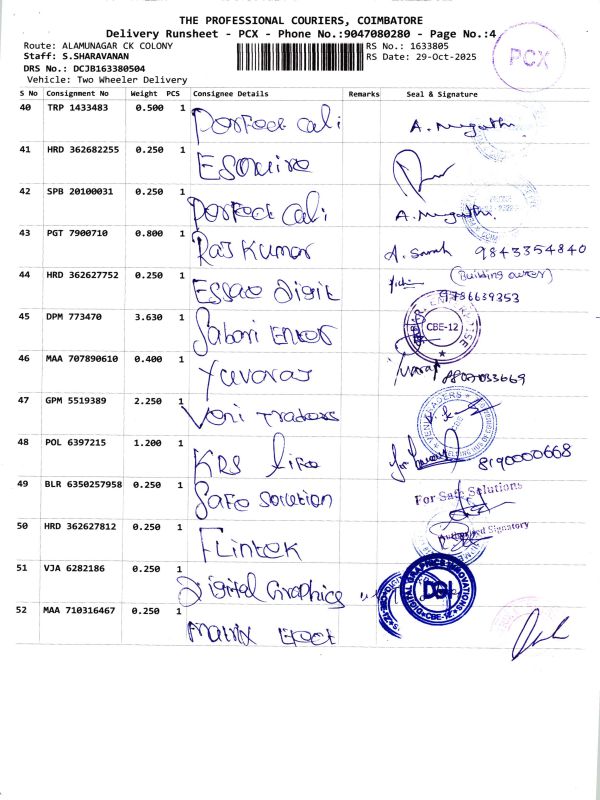 THE PROFESSIONAL COURIERS, COIMBATORE
Delivery Runsheet - PCX - Phone No.:9047080280 - Page No.:4
Route: ALAMUNAGAR CK COLONY
RS No.: 1633805
Staff: S.SHARAVANAN
RS Date: 29-Oct-2025
DRS No.: DCJB163380504
Vehicle: Two Wheeler Delivery
PCX
S No Consignment No Weight PCS Consignee Details Remarks Seal & Signature
40 TRP 1433483 0.500 1 Perfect Cali
41 HRD 362682255 0.250 1 Esquire
42 SPB 20100031 0.250 1 Perfect Cali
43 PGT 7900710 0.800 1 Raj Kumar A. Sarah 9843354840
44 HRD 362627752 0.250 1 Essae Digit (Building owner)
9786639353
45 DPM 773470 3.630 1 Sabari Enter CBE-12
46 MAA 707890610 0.400 1 Yuvaraj Yuvaraj
47 GPM 5519389 2.250 1 Veni Traders VENI TRADERS
48 POL 6397215 1.200 1 KRS Life 8190000668
49 BLR 6350257958 0.250 1 Safe Solution For Safe Solutions
Authorised Signatory
50 HRD 362627812 0.250 1 Flintek
51 VJA 6282186 0.250 1 Digital Graphics DIGITAL GRAPHICS INNOVATIONS DGI CBE-12
52 MAA 710316467 0.250 1 Matrix